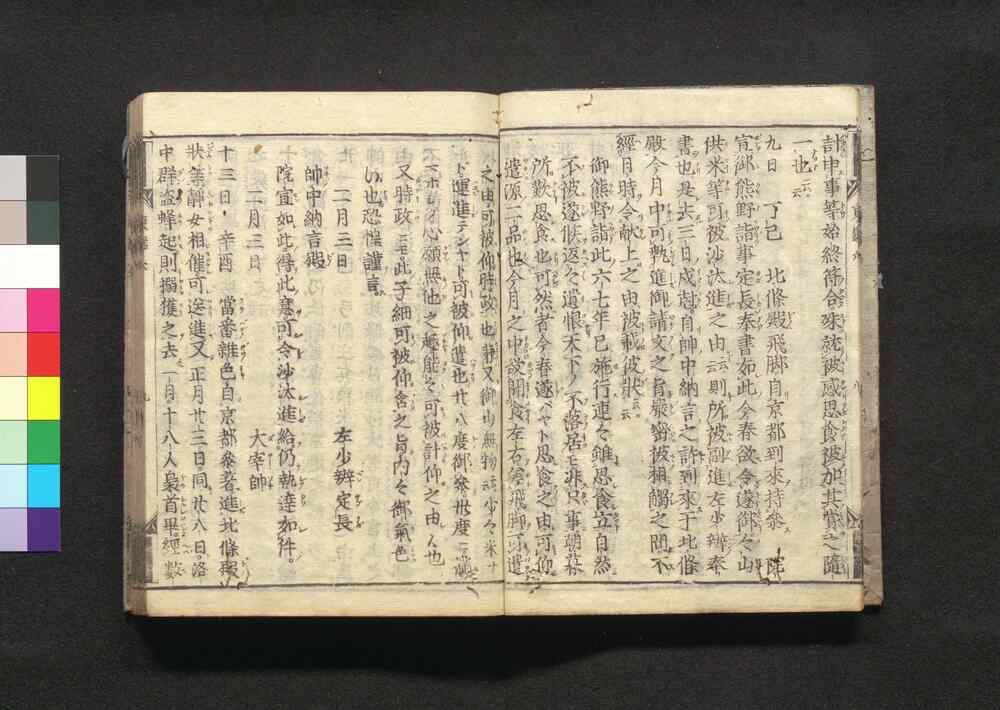 計申事等始終符合殊就被感思食被加其賞之隨
一也云云
九日 丁巳 北條殿飛脚自京都到來持參 院
宣御熊野詣事定長奉書如此今春欲令遂御々山
供米等可被沙汰進之由云云則所被副進左少辨奉
書也是去三日戌尅自帥中納言之許到來于北條
殿今月中可執進御請文之旨嚴密被相觸之間不
經月時令献上之由被載彼狀云云
御熊野詣此六七年已施行連々雖思食立自然
不被遂候返々遺恨天下ノ不落居モ非只事朝暮
所歎思食也可然者今春遂ハヤト思食之由可仰
遣源二品也今月之中設聞食左右以飛脚可遣
之由可被仰時政也且又御山無物云少々米ナ
ト運進テンヤト可被仰遣也廿八度御參卅度ニ滿
マホシキ心願無他之趣能々可被計仰之由候也
又時政ニモ此子細可被仰含之旨内々御氣色
候也恐惶謹言
二月三日 左少辨定長
帥中納言殿
院宣如此得此意可令沙汰進給仍執達如件
二月三日 大宰帥
十三日 辛酉 當番雜色自京都參著進北條殿
狀等靜女相催可送進又正月廿三日同廿八日洛
中群盗蜂起則搦獲之去一月十八人梟首畢經數